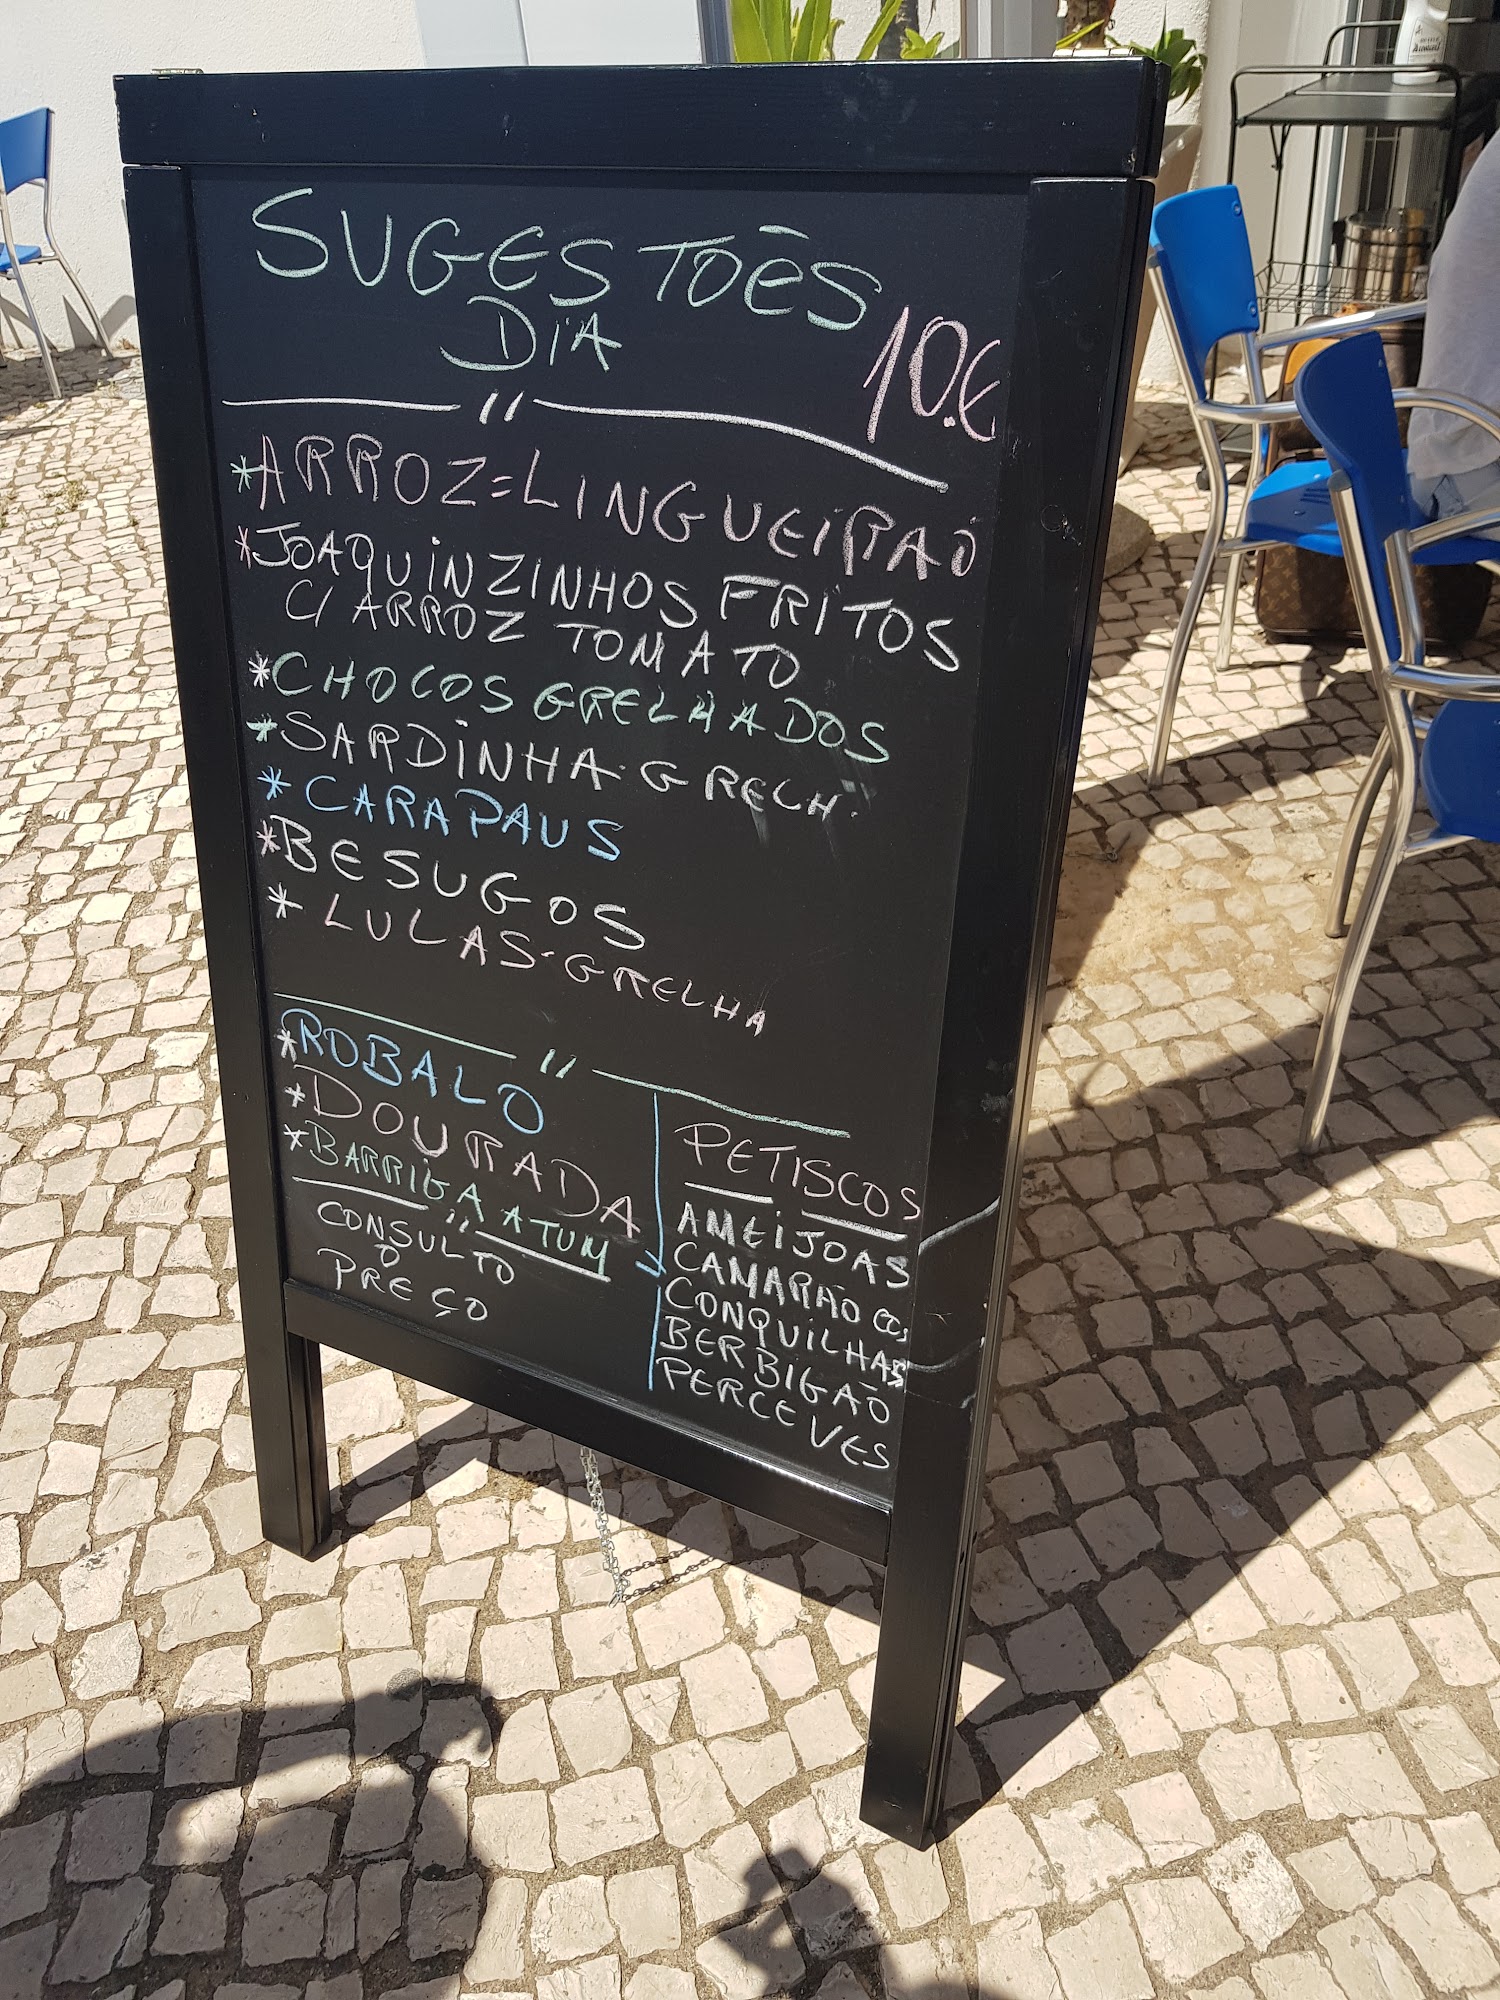 SUGESTÕES
DIA
10.€
*ARROZ=LINGUEIRAÕ
*JOAQUINZINHOS FRITOS
C/ ARROZ TOMATO
*CHOCOS GRELHADOS
*SARDINHA.GRELH.
*CARAPAUS
*BESUGOS
*LULAS.GRELHA
*ROBALO
*DOURADA
*BARRIGA ATUM
CONSULTO
O
PREÇO
PETISCOS
AMEIJOAS
CAMARÃO
CONQUILHAS
BERBIGÃO
PERCEVES